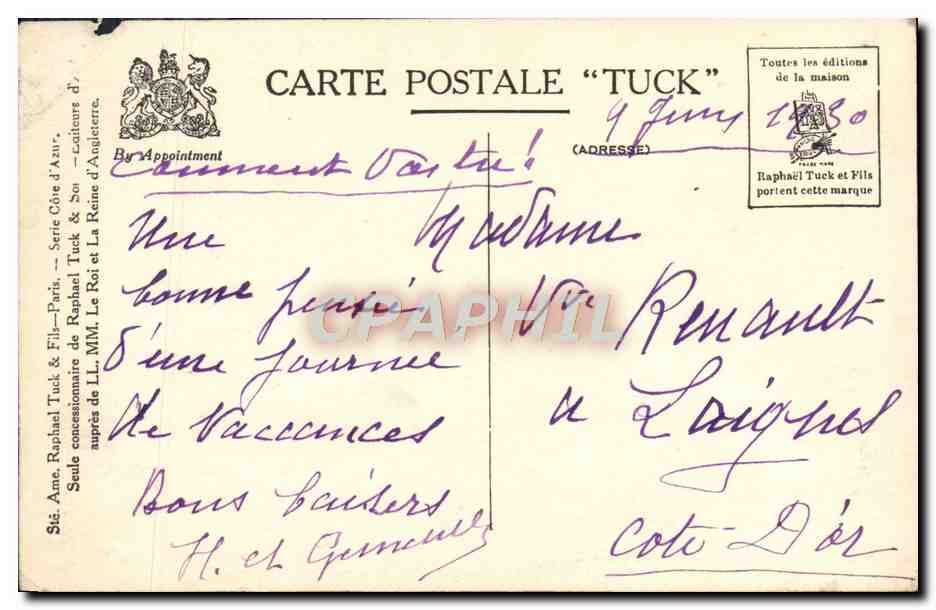 CARTE POSTALE "TUCK"
By Appointment
(ADRESSE)
Toutes les éditions
de la maison
TRADE MARK
Raphaël Tuck et Fils
portent cette marque
Sté. Ame. Raphael Tuck & Fils—Paris. — Serie Côte d'Azur.
Seule concessionnaire de Raphael Tuck & Sons —Editeurs d'
auprès de LL. MM. Le Roi et La Reine d'Angleterre.
9 1930
Comment
Une
bonne pensée
d'une journée
de Vaccances
Bons baisers
H. et
Madame
Vve Renault
a Laignes
Cote D'or
CPAPHIL